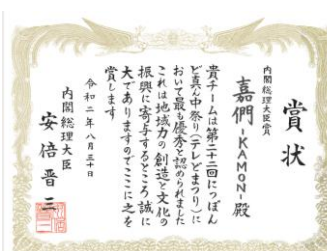 賞状
内閣総理大臣賞
嘉們-KAMON-殿
貴チームは第二十二回にっぽん
ど真ん中祭り(テレどまつり)に
おいて最も優秀と認められました
これは地域力の創造と文化の
振興に寄与するところ誠に
大でありますのでここに之を
賞します
令和二年八月三十日
内閣総理大臣
安倍晋三